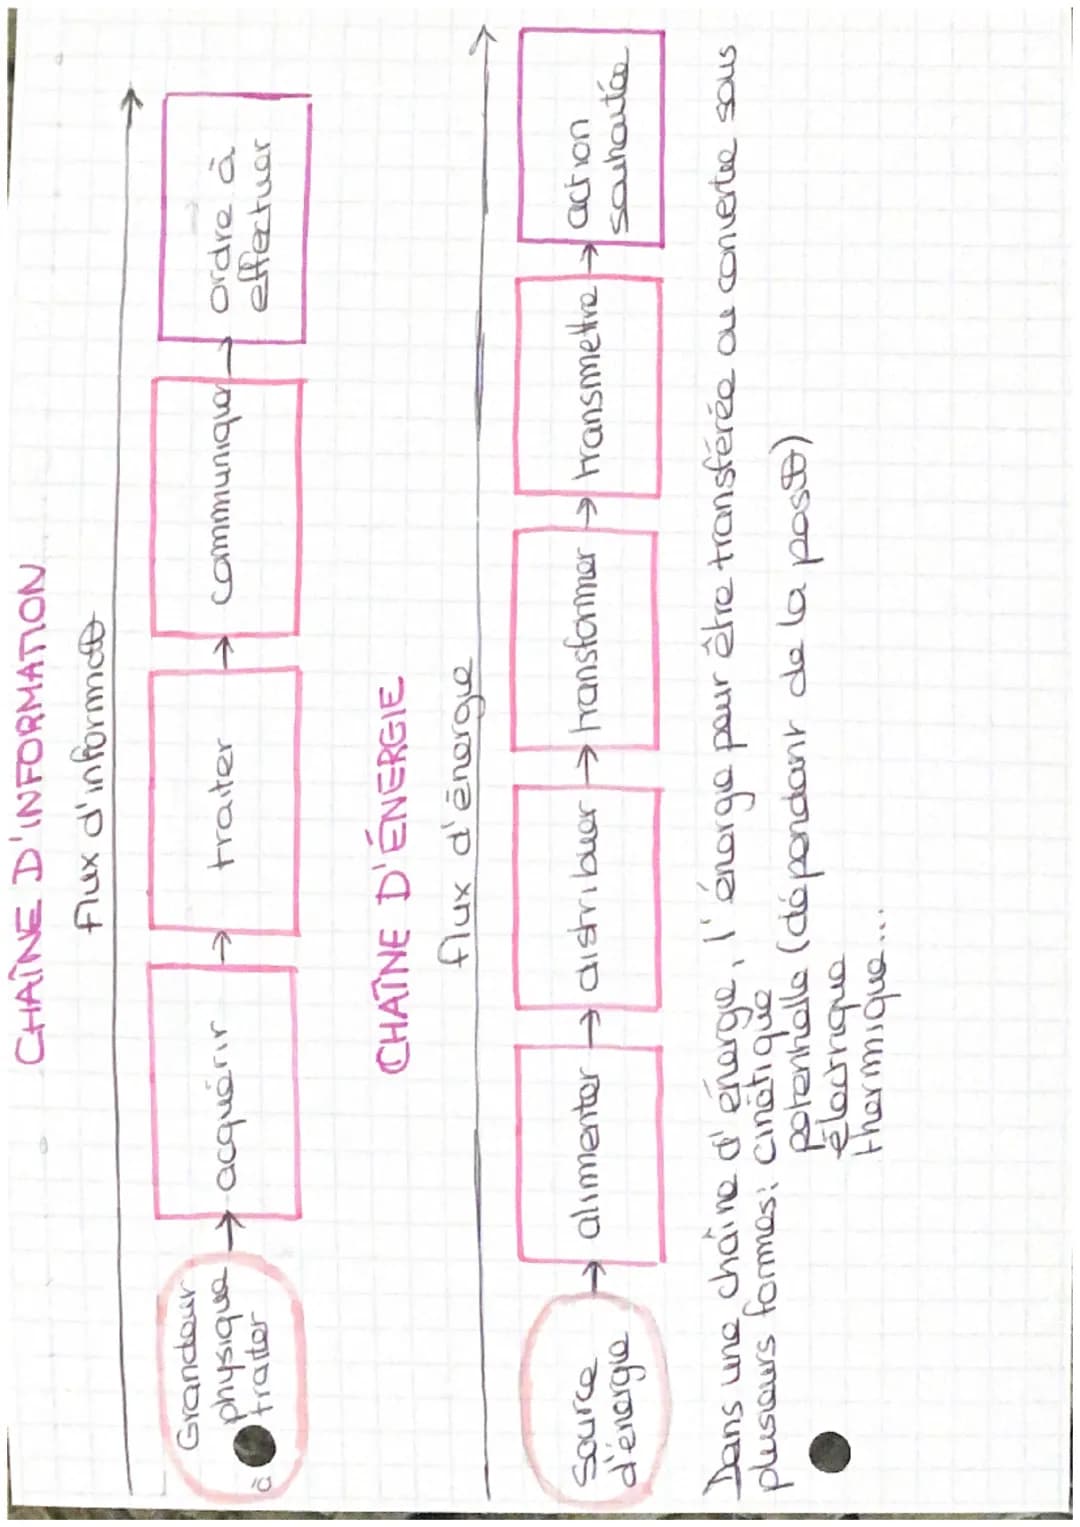 CHAÎNE D'INFORMATION
Flux d'informat⊕
Grandeur
physique
à traiter
acquérir
traiter
communiquer
ordre à
effectuer
CHAÎNE D'ÉNERGIE
flux d'énergie
Source
d'énergie
alimenter
distribuer
transformer
transmettre
action
souhaitée
Dans une chaîne d'énergie, l'énergie peur être transférée ou convertie sous
plusieurs formes: cinétique
potentielle (dépendant de la posit⊕)
électrique
thermique...